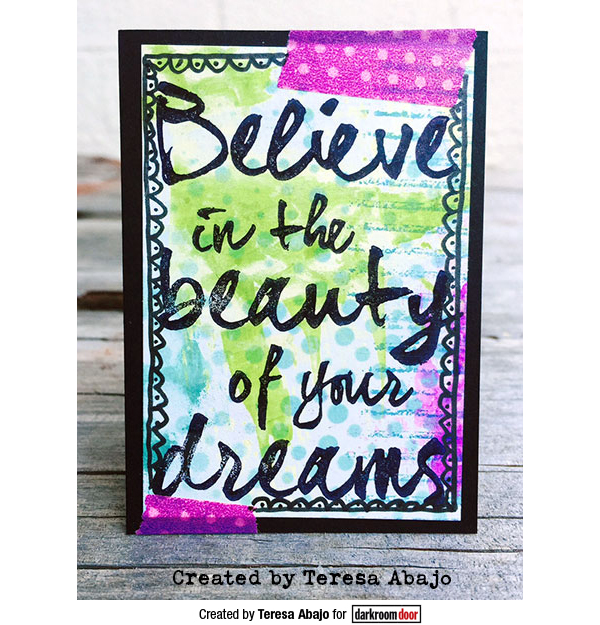 Believe
in the
beauty
of your
dreams
Created by Teresa Abajo
Created by Teresa Abajo for darkroomdoor